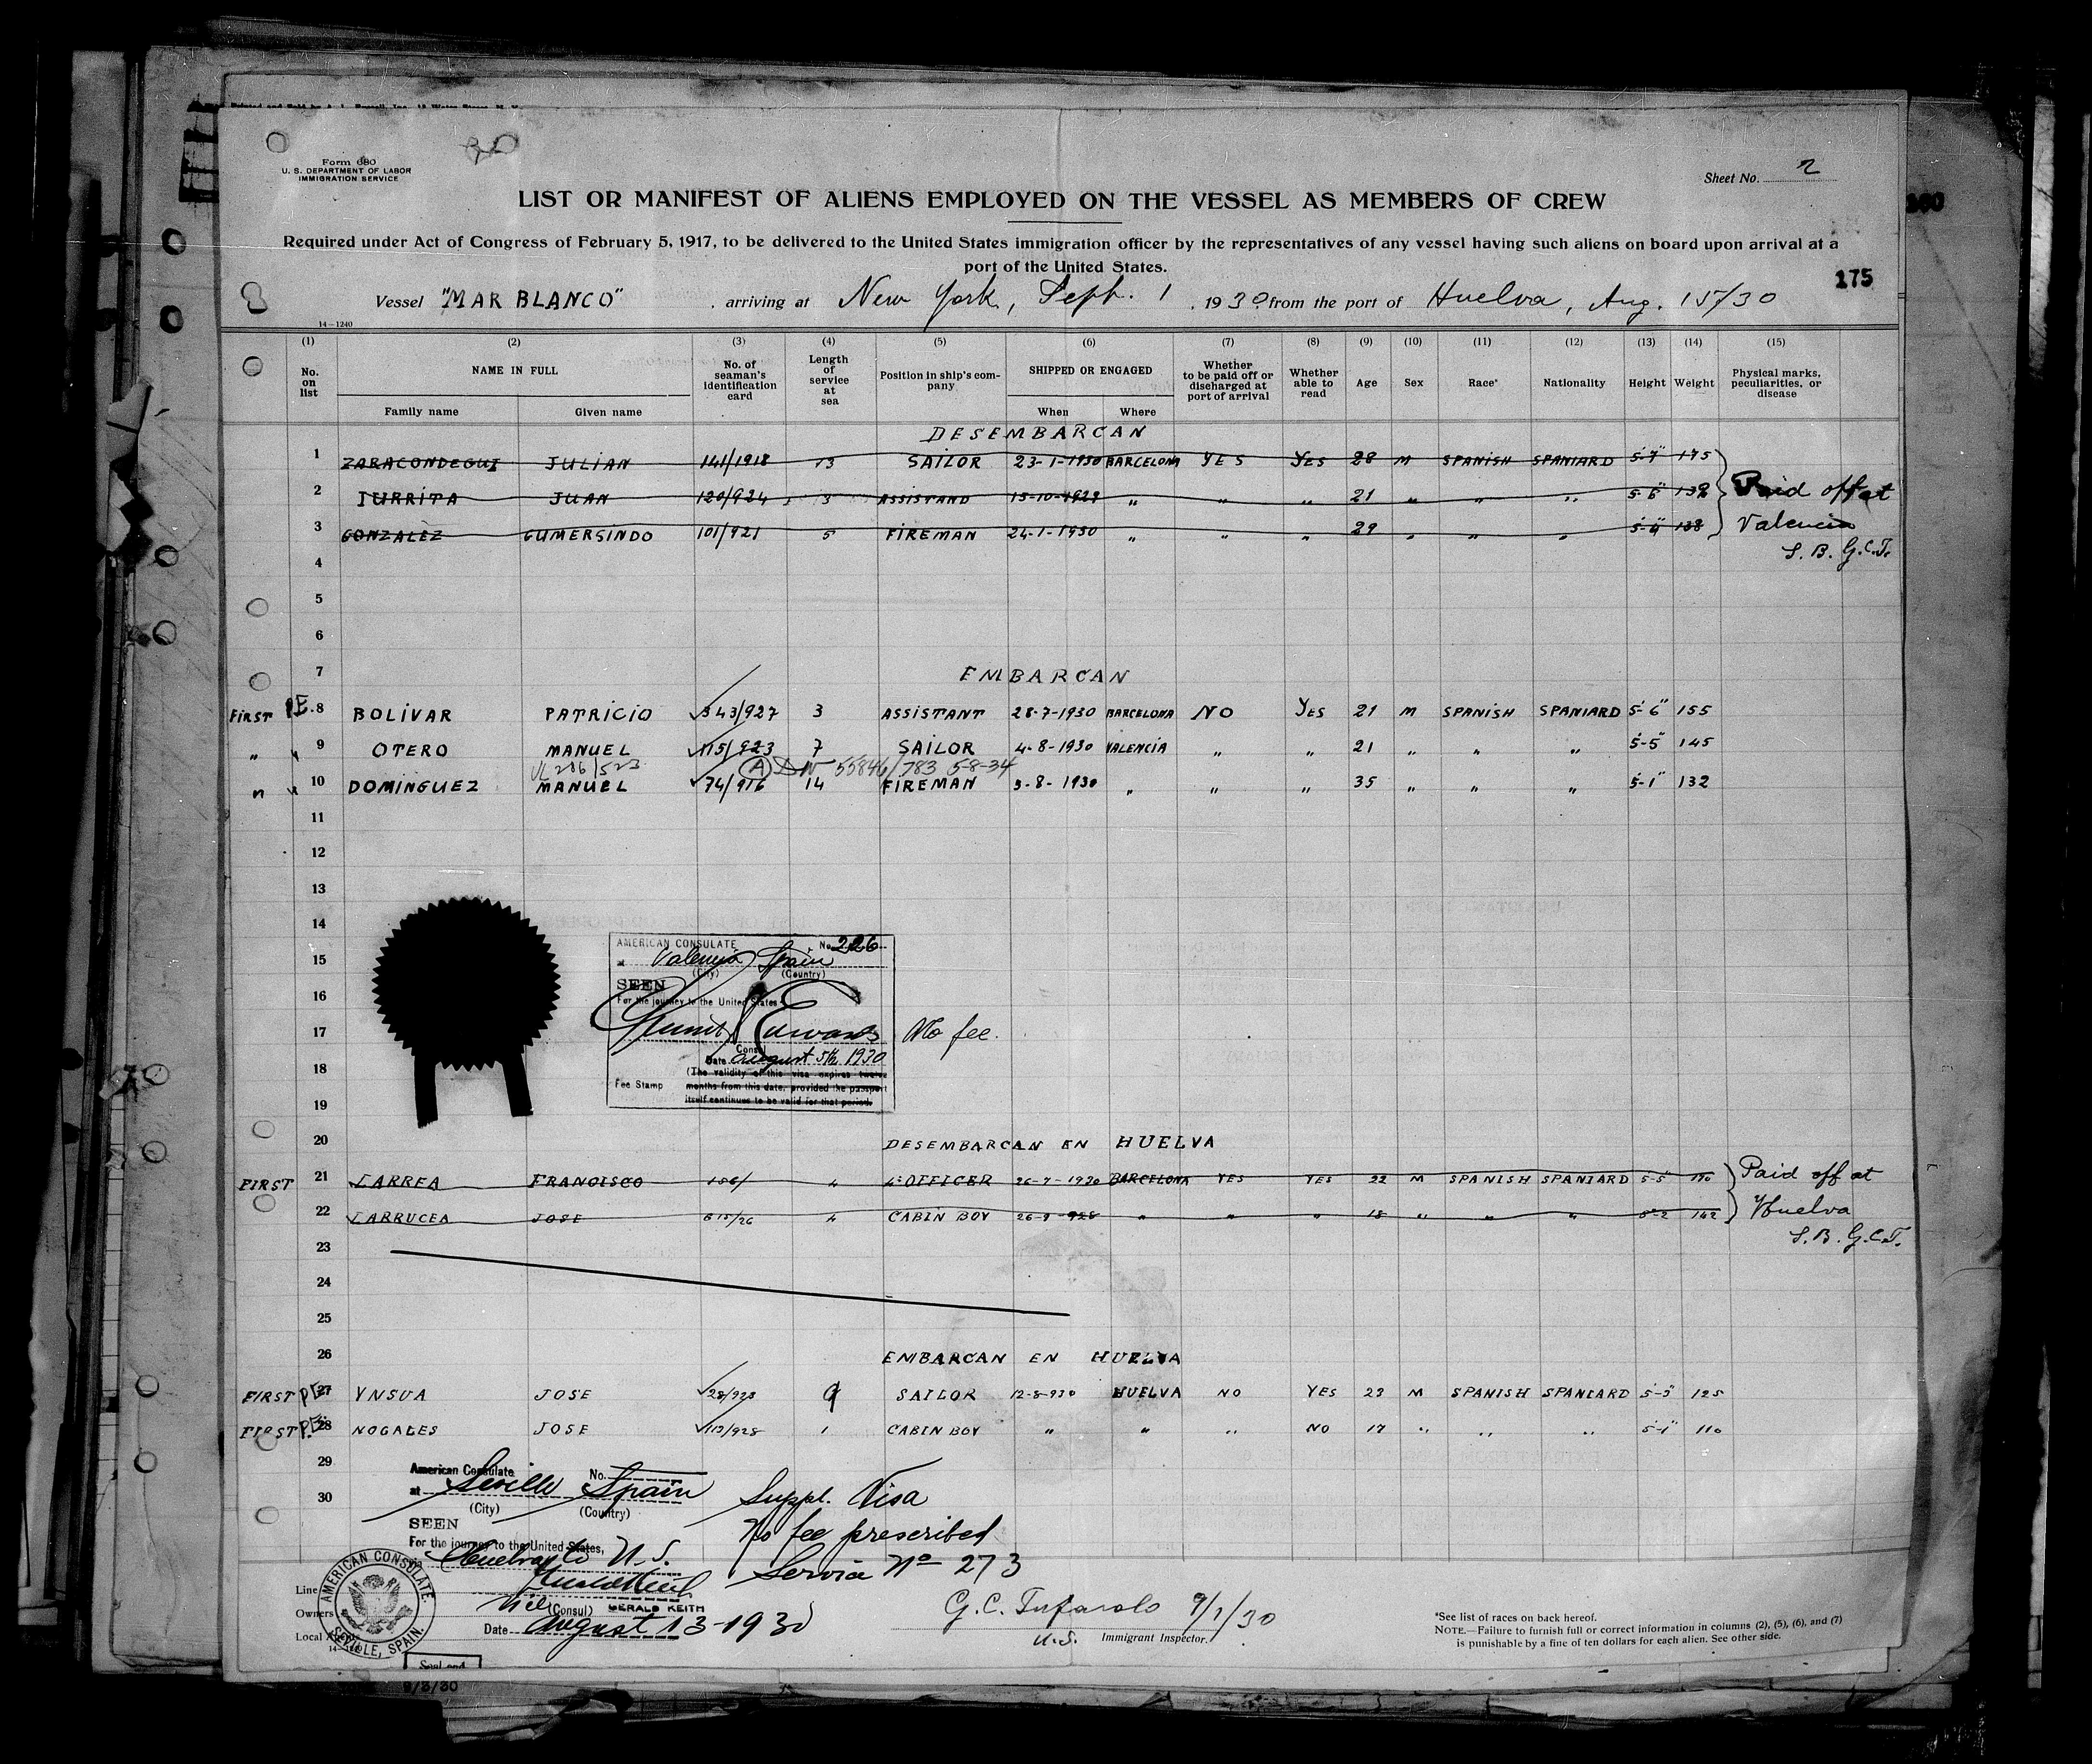 Form 680
U. S. DEPARTMENT OF LABOR
IMMIGRATION SERVICE
Sheet No. 2
LIST OR MANIFEST OF ALIENS EMPLOYED ON THE VESSEL AS MEMBERS OF CREW
Required under Act of Congress of February 5, 1917, to be delivered to the United States immigration officer by the representatives of any vessel having such aliens on board upon arrival at a
port of the United States.
175
Vessel "MAR BLANCO" , arriving at New York, Sept. 1 , 1930 from the port of Huelva, Aug. 15/30
14—1240
(1) (2) (3) (4) (5) (6) (7) (8) (9) (10) (11) (12) (13) (14) (15)
No. on list NAME IN FULL Family name Given name No. of seaman's identification card Length of service at sea Position in ship's company SHIPPED OR ENGAGED When Where Whether to be paid off or discharged at port of arrival Whether able to read Age Sex Race* Nationality Height Weight Physical marks, peculiarities, or disease
DESEMBARCAN
1 ZARACONDEGUI JULIAN 141/1918 13 SAILOR 23-1-1930 BARCELONA YES YES 28 M SPANISH SPANIARD 5-7" 175
2 IURRITA JUAN 120/924 3 ASSISTAND 15-10-1929 " " " 21 " " " 5-6" 139 Paid off at
3 GONZALEZ GUMERSINDO 101/921 5 FIREMAN 24-1-1930 " " " 29 " " " 5-4" 138 Valencia
S. B. G.C.T.
4
5
6
7 EMBARCAN
FIRST P.E. 8 BOLIVAR PATRICIO 343/927 3 ASSISTANT 28-7-1930 BARCELONA NO YES 21 M SPANISH SPANIARD 5-6" 155
" " 9 OTERO MANUEL 115/923 7 SAILOR 4-8-1930 VALENCIA " " 21 " " " 5-5" 145
55846/783 5-8-34
" " 10 DOMINGUEZ MANUEL 74/916 14 FIREMAN 3-8-1930 " " " 35 " " " 5-1" 132
11
12
13
14
15
16
17
18
19
AMERICAN CONSULATE No. 226
at Valencia Spain
(City) (Country)
SEEN
For the journey to the United States
No fee.
Consul
Date August 5th 1930
(The validity of this visa expires twelve
Fee Stamp months from this date, provided the passport
itself continues to be valid for that period.
20 DESEMBARCAN EN HUELVA
FIRST 21 LARREA FRANCISCO 156/ 4 4º OFFICER 26-7-1930 BARCELONA YES YES 22 M SPANISH SPANIARD 5-5" 170 Paid off at
22 LARRUCEA JOSE 615/26 4 CABIN BOY 26-9-928 " " " 18 " " " 5-2 142 Huelva
S. B. G.C.T.
23
24
25
26 EMBARCAN EN HUELVA
FIRST P.E. 27 YNSUA JOSE 28/923 9 SAILOR 12-8-930 HUELVA NO YES 23 M SPANISH SPANIARD 5-3" 125
FIRST P.E. 28 NOGALES JOSE 113/928 1 CABIN BOY " " " NO 17 " " " 5-1" 110
29
30
American Consulate No.
at Seville Spain
(City) (Country)
SEEN
For the journey to the United States,
Huelva to U.S.
Vice (Consul) GERALD KEITH
Date August 13-1930
Suppl. Visa
No fee prescribed
Service Nº 273
AMERICAN CONSULATE.
SEVILLE, SPAIN.
Line
Owners
Local Agents
G. C. 9/1/30
U.S. Immigrant Inspector.
*See list of races on back hereof.
NOTE.—Failure to furnish full or correct information in columns (2), (5), (6), and (7)
is punishable by a fine of ten dollars for each alien. See other side.